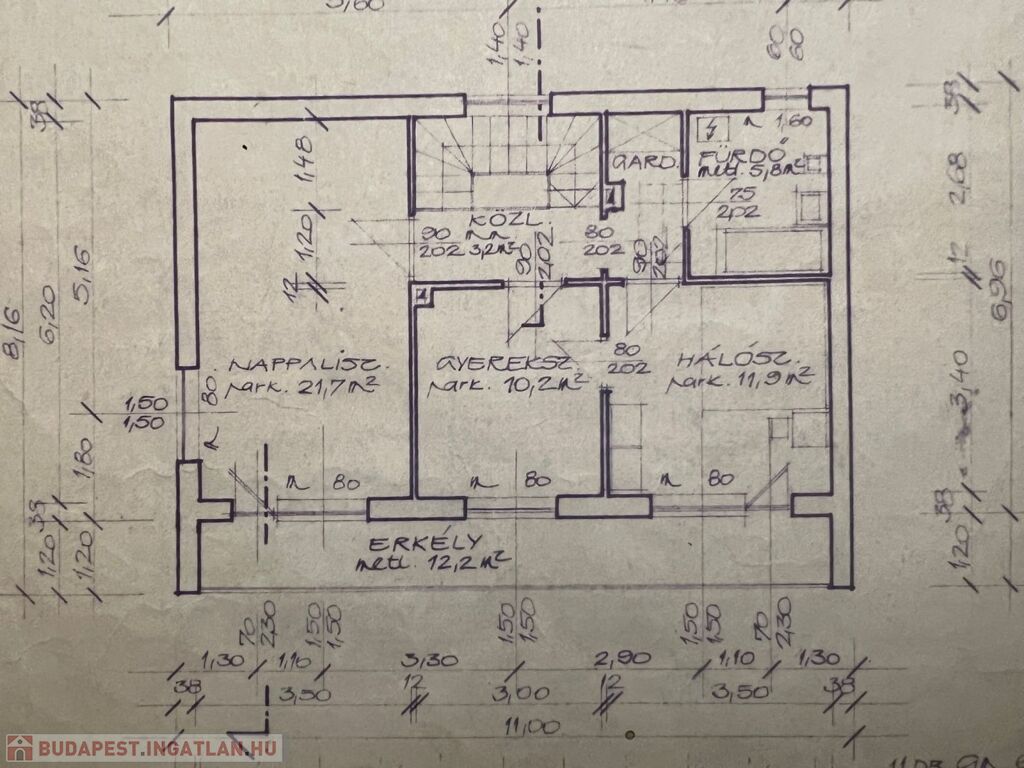 5,60
1,40
1,40
60
60
38
8,16
6,20
5,16
1,48
12
1,20
GARD.
FÜRDŐ
metl. 5,8 m²
1,60
75
202
KÖZL.
3,2 m²
90
202
80
202
90
202
90
202
38
2,68
12
6,96
3,40
NAPPALISZ.
park. 21,7 m²
GYEREKSZ.
park. 10,2 m²
80
202
HÁLÓSZ.
park. 11,9 m²
1,50
1,50
80
1,80
m 80
m 80
m 80
38
1,20
1,20
38
1,20
ERKÉLY
metl. 12,2 m²
70
2,30
1,50
1,50
1,50
1,50
1,50
1,50
70
2,30
1,30
1,10
3,30
2,90
1,10
1,30
38
3,50
12
3,00
12
3,50
38
11,00
BUDAPEST.INGATLAN.HU